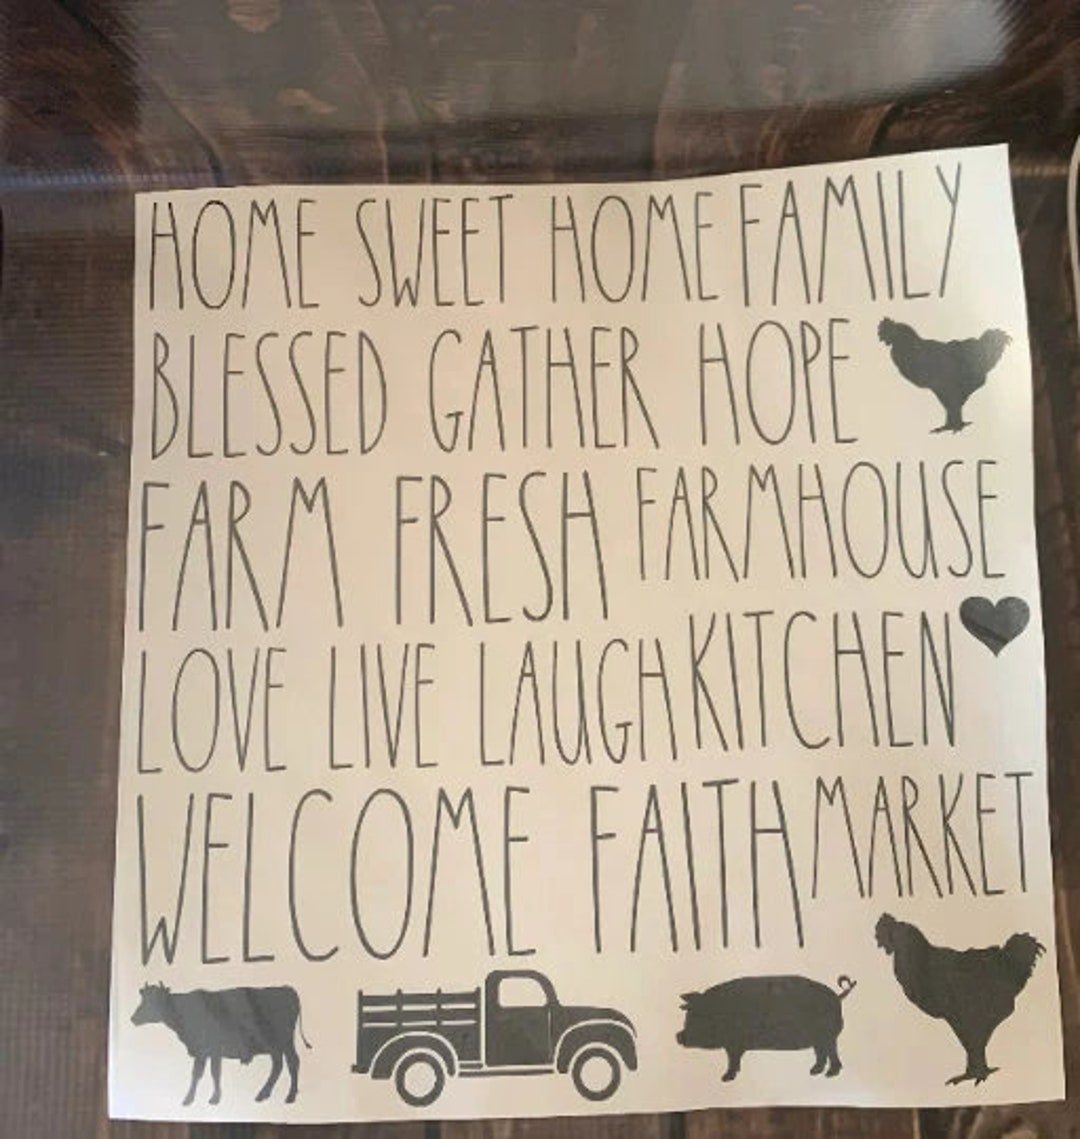 HOME SWEET HOME FAMILY
BLESSED GATHER HOPE
FARM FRESH FARMHOUSE
LOVE LIVE LAUGH KITCHEN
WELCOME FAITH MARKET